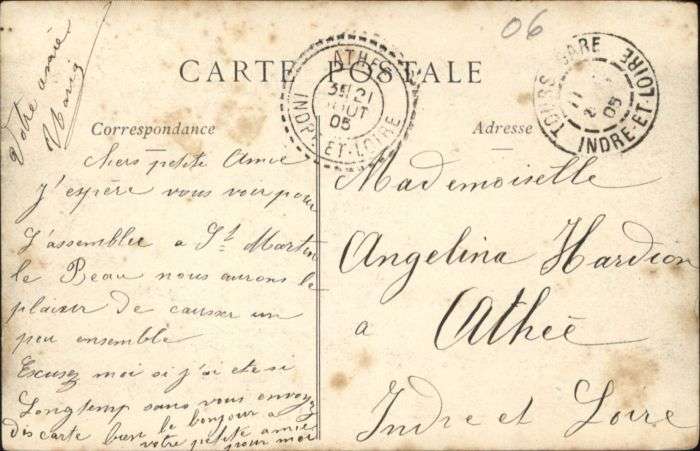 06
CARTE POSTALE
ATHÉE
21
AOUT
05
INDRE-ET-LOIRE
TOURS GARE
05
INDRE-ET-LOIRE
Correspondance
Adresse
Votre amie
petite Amie
J'espère vous voir pour
L'assemblee a St Martin
le Beau nous aurons le
plaisir de causser un
peu ensemble
Excusez moi si j'ai ete si
Longtemp sans vous envoyez
des carte bien le bonjour a
votre petite amie
pour moi
Mademoiselle
Angelina Hardion
a Athée
Indre et Loire